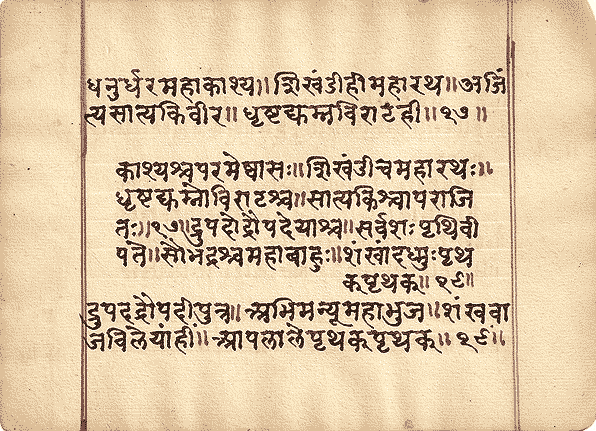 धनुर्धरमहाकाश्य॥शिखंडीहीमहारथ॥अजिं
त्यसात्यकिवीर॥धृष्टद्युम्नविराटही॥१७॥
काश्यश्चपरमेष्वासः॥शिखंडीचमहारथः॥
धृष्टद्युम्नोविराटश्च॥सात्यकिश्चापराजि
तः॥१७॥द्रुपदोद्रौपदेयाश्च॥सर्वशःपृथिवी
पते॥सौभद्रश्चमहाबाहुः॥शंखांदध्मुःपृथ
कपृथक॥१८॥
द्रुपदद्रौपदीपुत्र॥अभिमन्यूमहाभुज॥शंखवा
जविलेयांहीं॥आपलालेपृथकपृथक॥१८॥